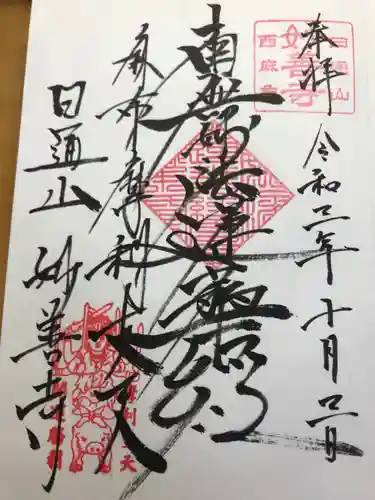 奉拝
令和二年十月二日
南無妙法蓮華経
麻布摩利支天
日通山 妙善寺
日通山
妙善寺
西麻布